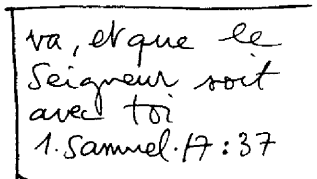 va, et que le
Seigneur soit
avec toi
1. Samuel. 17:37